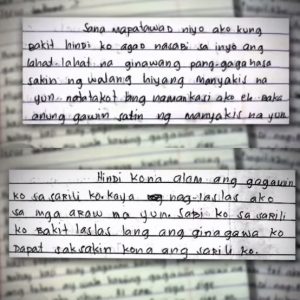 Sana mapatawad niyo ako kung
bakit hindi ko agad nasabi sa inyo ang
lahat-lahat na ginawang pang-gagahasa
sakin ng walang hiyang manyakis na
yun. natatakot lang naman kasi ako eh. Baka
anung gawin satin ng manyakis na yun.
Hindi kona alam ang gagawin
ko sa sarili ko. kaya nag-laslas ako
sa mga araw na yun. Sabi ko sa sarili
ko Bakit laslas lang ang ginagawa ko
Dapat saksakin kona ang sarili ko.